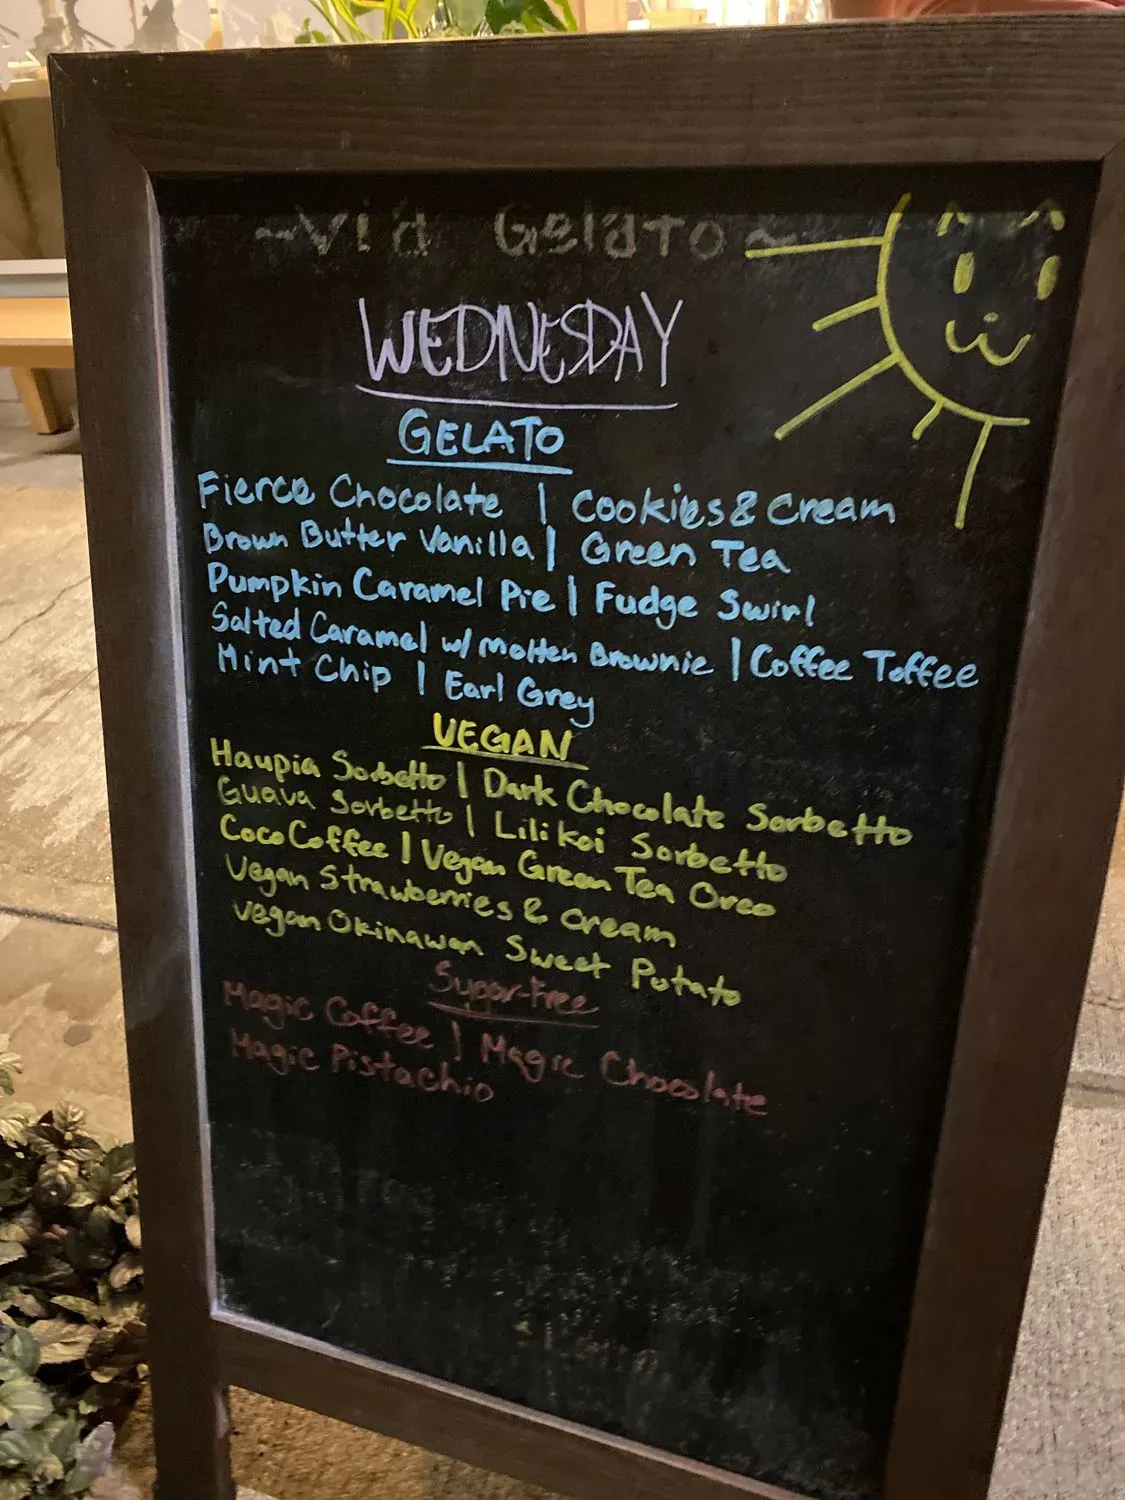 ~Via Gelato~
WEDNESDAY
GELATO
Fierce Chocolate | Cookies & Cream
Brown Butter Vanilla | Green Tea
Pumpkin Caramel Pie | Fudge Swirl
Salted Caramel w/ Molten Brownie | Coffee Toffee
Mint Chip | Earl Grey
VEGAN
Haupia Sorbetto | Dark Chocolate Sorbetto
Guava Sorbetto | Lilikoi Sorbetto
Coco Coffee | Vegan Green Tea Oreo
Vegan Strawberries & Cream
Vegan Okinawan Sweet Potato
Sugar-Free
Magic Coffee | Magic Chocolate
Magic Pistachio